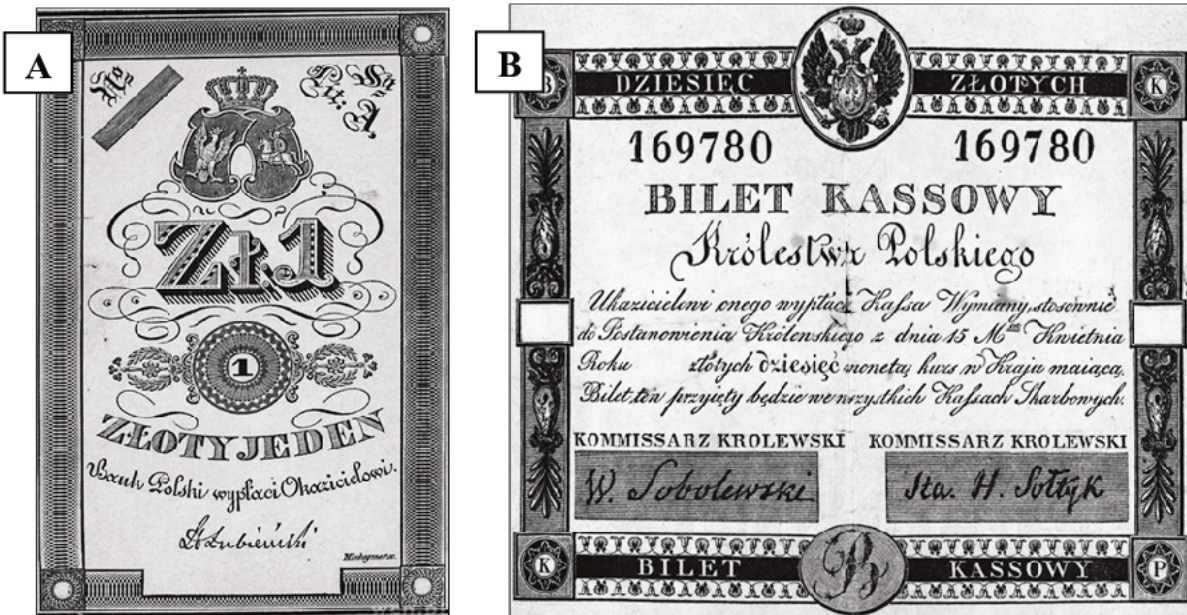 A
No
Lit: A,
Zł. 1
1
ZŁOTY JEDEN
Bank Polski wypłaci Okazicielowi.
HŁubieński
B
B
DZIESIĘC
ZŁOTYCH
K
169780
169780
BILET KASSOWY
Królestwa Polskiego
Ukazicielowi onego wypłaci Kassa Wymiany, stosownie
do Postanowienia Królewskiego z dnia 15 Mca Kwietnia
Roku złotych dziesięć monetą kurs w Kraju maiącą.
Bilet ten przyięty będzie we wszystkich Kassach Skarbowych.
KOMMISSARZ KROLEWSKI
KOMMISSARZ KROLEWSKI
W. Sobolewski
Sta. H. Sołtyk
K
BILET
KASSOWY
P